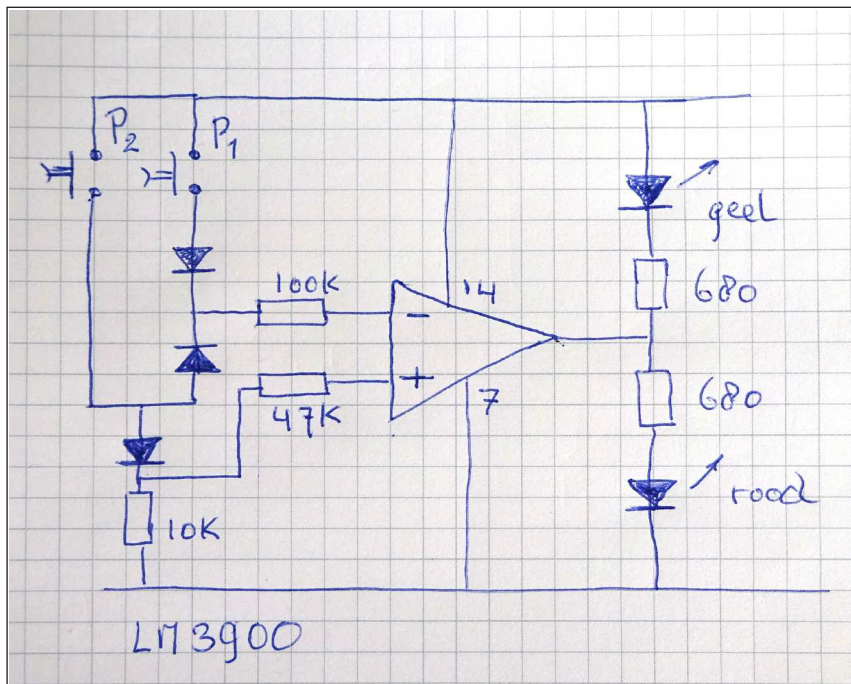 P2
P1
geel
100K
14
680
-
+
47K
7
680
rood
10K
LM3900